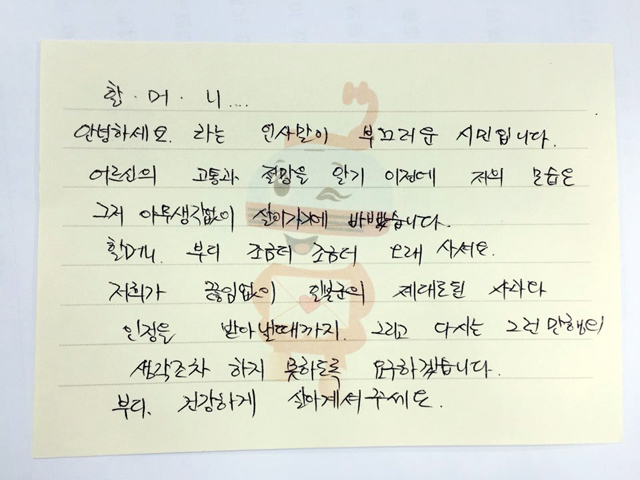 할·머·니...
안녕하세요. 라는 인사말이 부끄러운 시민입니다.
어르신의 고통과 절망을 알기 이전에 저의 모습은
그저 아무생각없이 살아가기에 바빴습니다.
할머니. 부디 조금더 조금더 오래 사셔요.
저희가 끊임없이 일본군의 제대로된 사과다
인정을 받아낼때까지. 그리고 다시는 그런 만행의
생각조차 하지 못하도록 요구하겠습니다.
부디. 건강하게 살아계셔주세요.